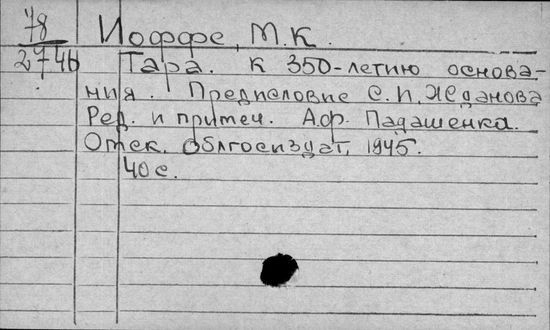 78
2746
Иоффе, М.К.
Тара. К 350-летию основа-
ния. Предисловие С.П. Жданова
Ред. и примеч. Аф. Палашенка.
Омск. Облгосиздат, 1945.
40 с.